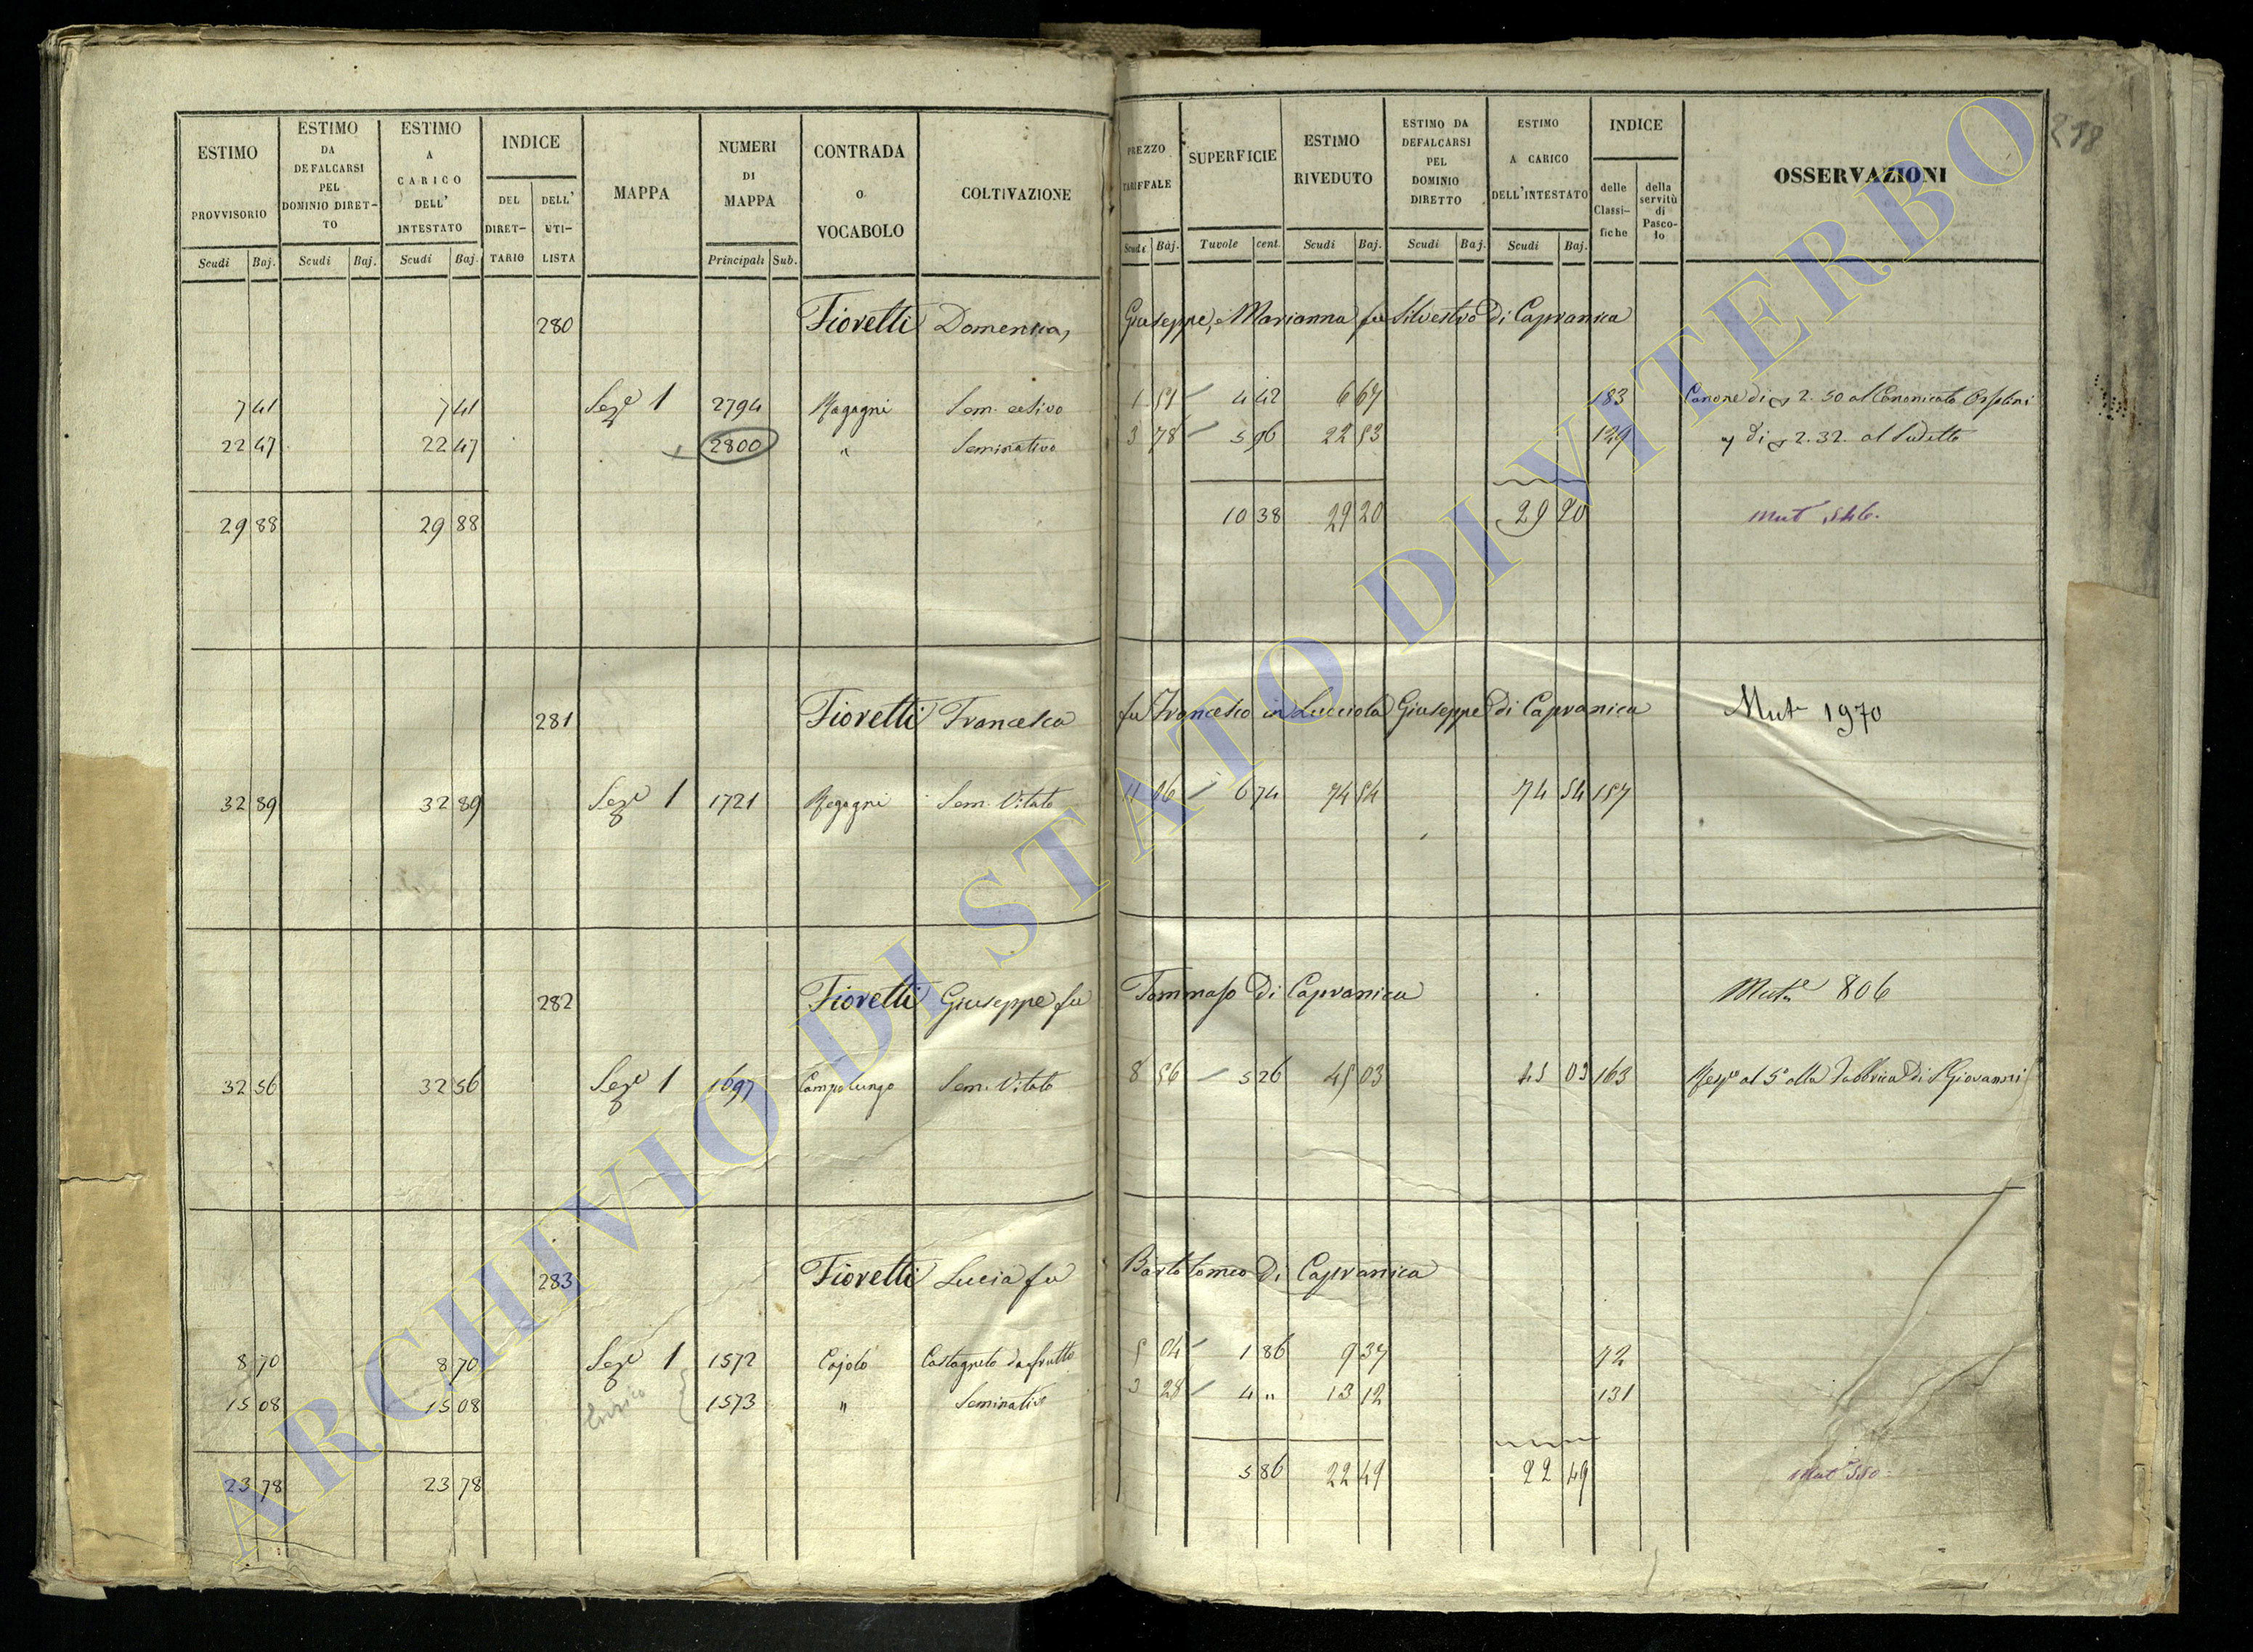 218
ESTIMO PROVVISORIO
ESTIMO DA DEFALCARSI PEL DOMINIO DIRET-TO
ESTIMO A CARICO DELL' INTESTATO
INDICE
DEL DIRET-TARIO
DELL' UTI-LISTA
MAPPA
NUMERI DI MAPPA
CONTRADA o VOCABOLO
COLTIVAZIONE
PREZZO TARIFFALE
SUPERFICIE
ESTIMO RIVEDUTO
ESTIMO DA DEFALCARSI PEL DOMINIO DIRETTO
ESTIMO A CARICO DELL'INTESTATO
INDICE
delle Classi-fiche
della servitù di Pasco-lo
OSSERVAZIONI
Scudi Baj. Scudi Baj. Scudi Baj. Principali Sub. Scudi Baj. Tavole cent. Scudi Baj. Scudi Baj. Scudi Baj.
280 Fioretti Domenica, Giuseppe, e Marianna fu Silvestro di Capranica
7 41 7 41 Seze 1 2794 Ragagni Sem. estivo 1 51 4 42 6 67 183 Canone di 2.50 al Canonicato
22 47 22 47 2800 " Seminativo 3 78 5 96 22 53 129 di 2.32. al Sudetto
29 88 29 88 10 38 29 20 29 20 Mut 546.
281 Fioretti Francesca fu Francesco in Lucciola Giuseppe di Capranica Mutе 1970
32 89 32 89 Sezе 1 1721 Regagni Sem. Vitato 11 06 6 74 74 54 74 54 157
282 Fioretti Giuseppe fu Tommaso di Capranica Mute 806
32 56 32 56 Seze 1 1697 Campolungo Sem. Vitato 8 56 5 26 45 03 45 03 163 al 5o alla Fabbrica di S Giovanni
283 Fioretti Lucia fu Bartolomeo di Capranica
8 70 8 70 Seze 1 1572 Cajolo Castagneto da frutto 5 04 1 86 9 37 72
15 08 15 08 1573 " Seminativo 3 28 4 " 13 12 131
23 78 23 78 5 86 22 49 22 49 Mut
ARCHIVIO DI STATO DI VITERBO